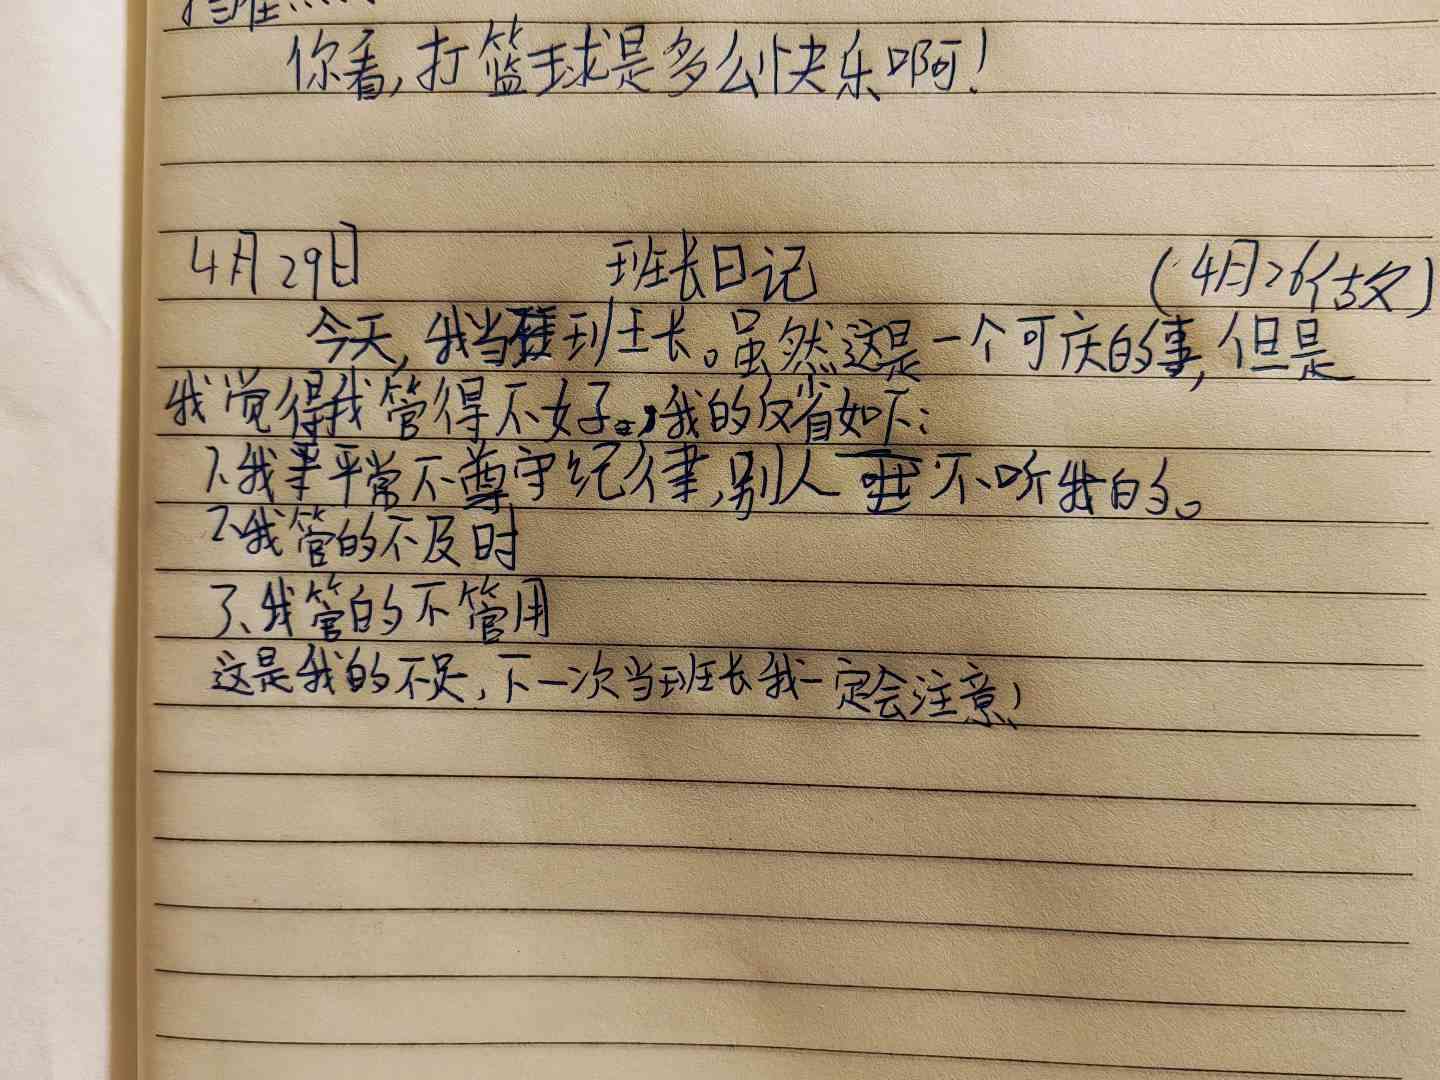 你看,打篮球是多么快乐啊!
4月29日 班长日记 (4月26作文)
今天,我当班长。虽然这是一个可庆的事,但是
我觉得我管得不好。,我的反省如下:
1、我平常不尊守纪律,别人不听我的。
2、我管的不及时
3、我管的不管用
这是我的不足,下一次当班长我一定会注意!